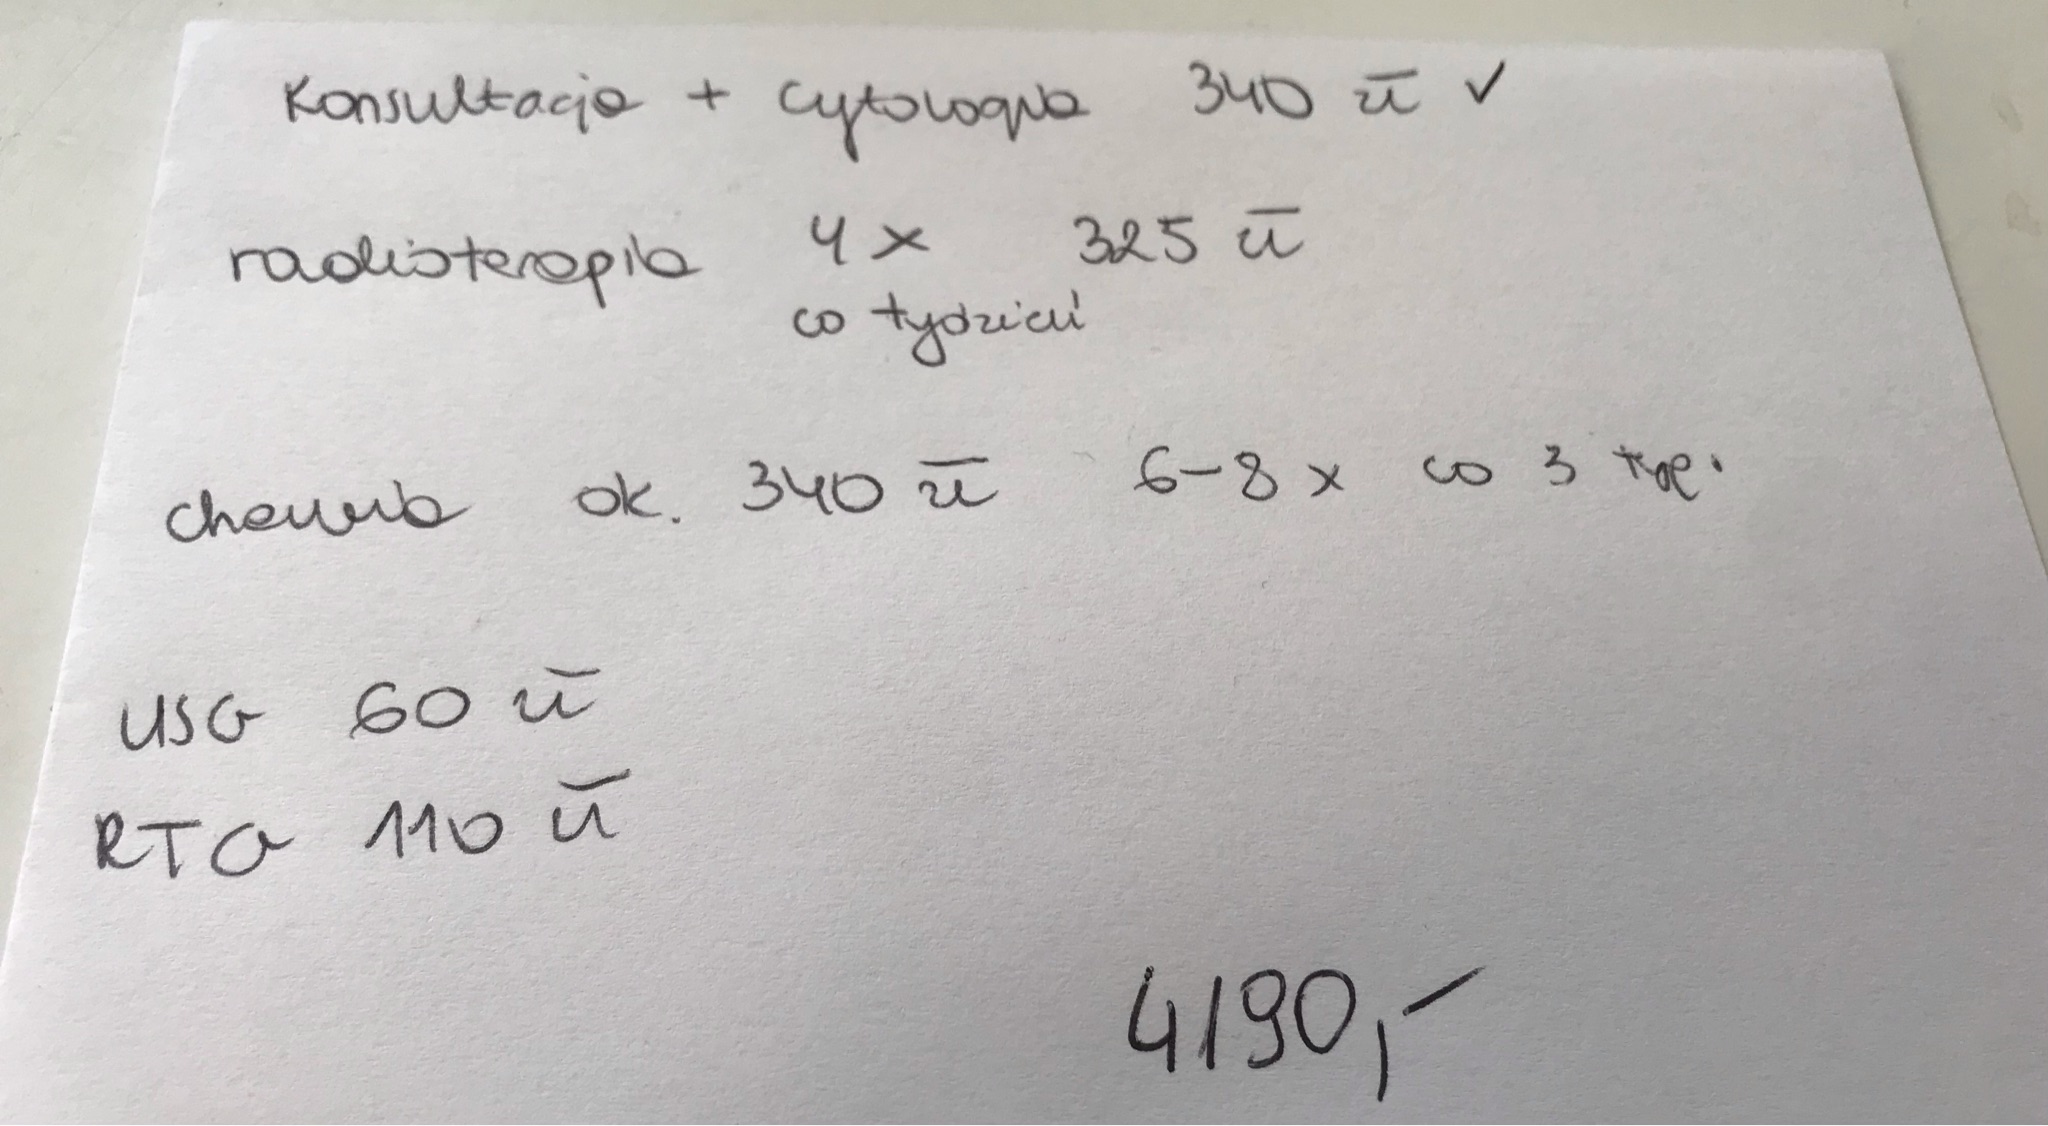 Konsultacja + cytologia 340 zł ✓
radioterapia 4x 325 zł
co tydzień
chemia ok. 340 zł 6-8x co 3 tyg.
USG 60 zł
RTG 110 zł
4190,-